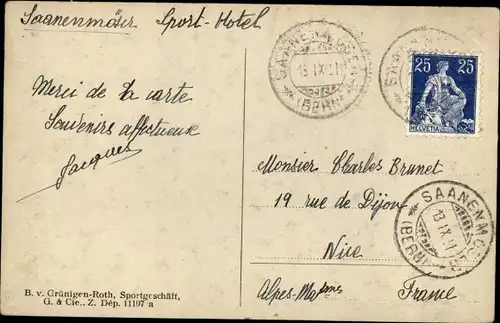 Saanenmöser Sport-Hotel
Merci de la carte
Souvenirs affectueux
Jacques
B. v. Grünigen-Roth, Sportgeschäft,
G. & Cie., Z. Dép. 11197 a
SAANENMÖSER
13.IX.
(BERN)
25 25
HELVETIA
Monsieur Charles Brunet
19 rue de Dijon
Nice
Alpes-Mmes
France
SAANENMÖSER
13.IX.
(BERN)